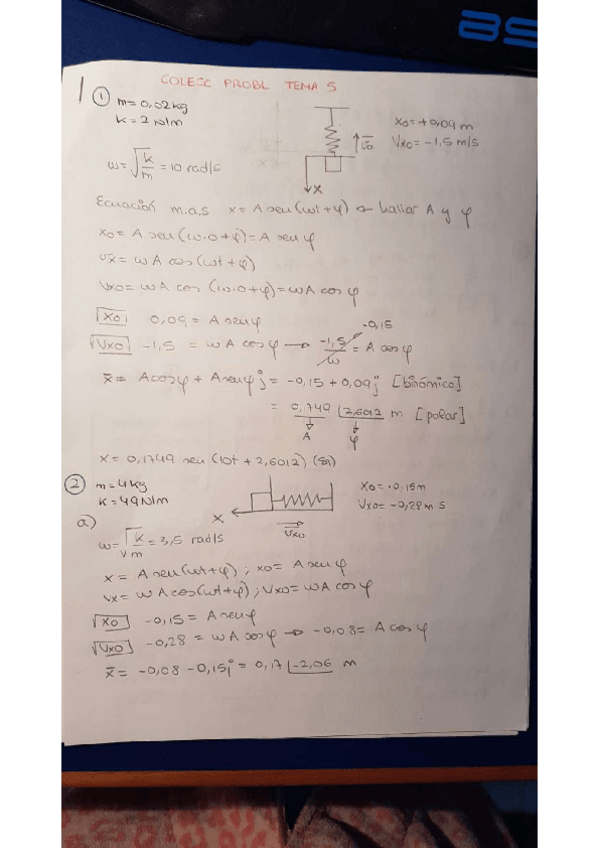 COLECC PROBL TEMA 5
1
① m=0,02kg
k=2 N/m
x0=+0,09 m
Vx0=-1,5 m/s
v0
x
ω=√k/m = 10 rad/s
Ecuación m.a.s x= A sen(ωt+φ) hallar A y φ
x0= A sen(ω·0+φ)=A sen φ
vx= ωA cos(ωt+φ)
Vx0= ωA cos (ω·0+φ)=ωA cos φ
x0 0,09 = A sen φ
-0,15
Vx0 -1,5 = ωA cos φ → -1,5/ω = A cos φ
x̄= A cos φ + A sen φ j = -0,15 + 0,09j [binómica]
= 0,1749 |2,6012 m [polar]
A φ
x= 0,1749 sen (10t + 2,6012) (SI)
② m=4kg
k=49N/m
x0=-0,15m
Vx0= -0,28 m s
x
Vx0
a)
ω=√k/m = 3,5 rad/s
x= A sen(ωt+φ) ; x0= A sen φ
vx= ωA cos(ωt+φ) ; Vx0= ωA cos φ
x0 -0,15= A sen φ
Vx0 -0,28 = ωA cos φ → -0,08= A cos φ
x̄= -0,08 -0,15j = 0,17 |-2,06 m